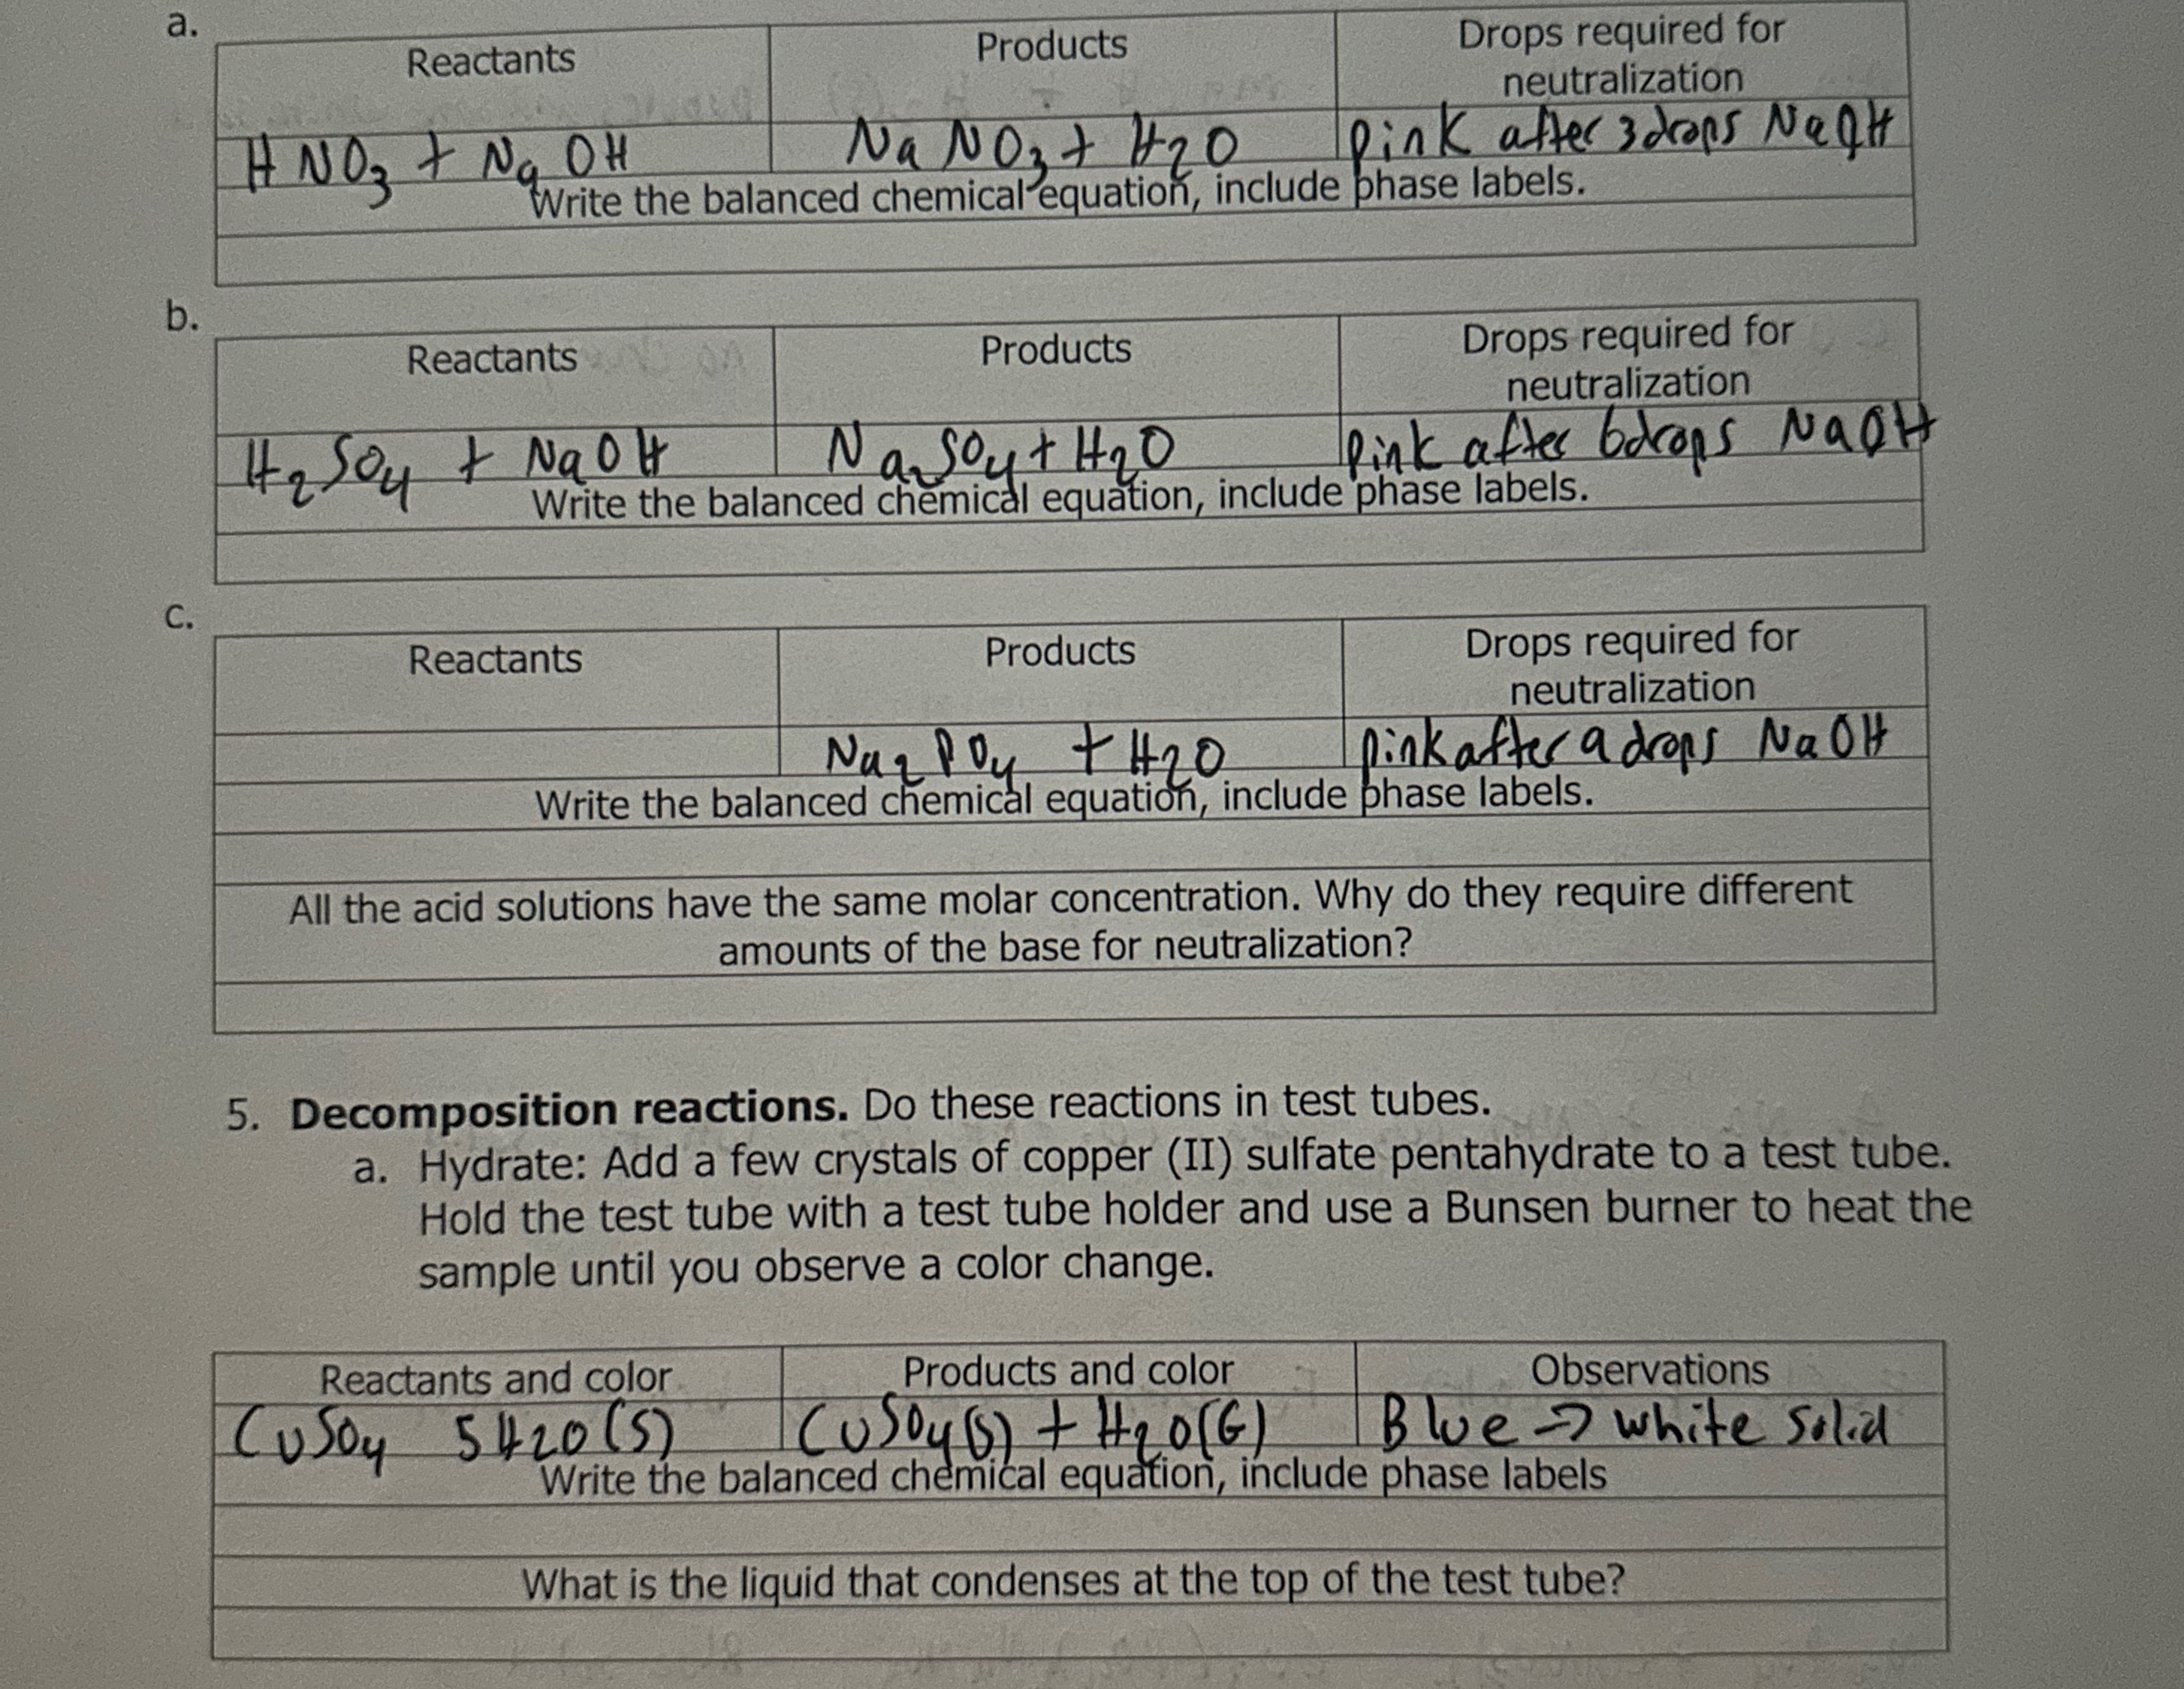 a.
Reactants Products Drops required for neutralization
HNO3 + NaOH NaNO3 + H2O pink after 3 drops NaOH
Write the balanced chemical equation, include phase labels.
b.
Reactants Products Drops required for neutralization
H2SO4 + NaOH Na2SO4 + H2O pink after 6 drops NaOH
Write the balanced chemical equation, include phase labels.
c.
Reactants Products Drops required for neutralization
Na2PO4 + H2O pink after 9 drops NaOH
Write the balanced chemical equation, include phase labels.
All the acid solutions have the same molar concentration. Why do they require different
amounts of the base for neutralization?
5. Decomposition reactions. Do these reactions in test tubes.
a. Hydrate: Add a few crystals of copper (II) sulfate pentahydrate to a test tube.
Hold the test tube with a test tube holder and use a Bunsen burner to heat the
sample until you observe a color change.
Reactants and color Products and color Observations
CuSO4 5H2O(S) CuSO4(S) + H2O(G) Blue → white solid
Write the balanced chemical equation, include phase labels
What is the liquid that condenses at the top of the test tube?